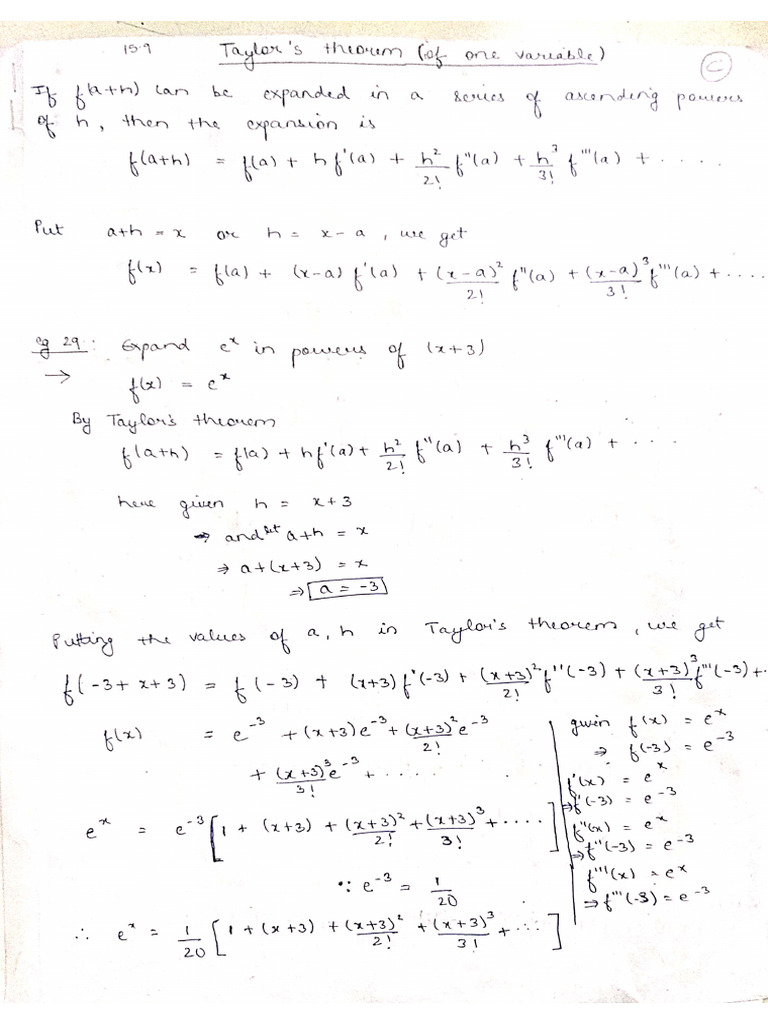 15.9 Taylor's theorem (of one variable)
C
If f(a+h) can be expanded in a series of ascending powers
of h, then the expansion is
f(a+h) = f(a) + h f'(a) + h²/2! f''(a) + h³/3! f'''(a) + ....
Put a+h = x or h = x-a, we get
f(x) = f(a) + (x-a) f'(a) + (x-a)²/2! f''(a) + (x-a)³/3! f'''(a) + ....
eg 29: Expand eˣ in powers of (x+3)
→ f(x) = eˣ
By Taylor's theorem
f(a+h) = f(a) + h f'(a) + h²/2! f''(a) + h³/3! f'''(a) + ...
here given h = x+3
⇒ and let a+h = x
⇒ a+(x+3) = x
⇒ a = -3
Putting the values of a, h in Taylor's theorem, we get
f(-3+x+3) = f(-3) + (x+3) f'(-3) + (x+3)²/2! f''(-3) + (x+3)³/3! f'''(-3) + ..
f(x) = e⁻³ + (x+3)e⁻³ + (x+3)²/2! e⁻³
+ (x+3)³/3! e⁻³ + .....
eˣ = e⁻³ [1 + (x+3) + (x+3)²/2! + (x+3)³/3! + ....]
∵ e⁻³ = 1/20
∴ eˣ = 1/20 [1 + (x+3) + (x+3)²/2! + (x+3)³/3! + ...]
given f(x) = eˣ
⇒ f(-3) = e⁻³
f'(x) = eˣ
⇒ f'(-3) = e⁻³
f''(x) = eˣ
⇒ f''(-3) = e⁻³
f'''(x) = eˣ
⇒ f'''(-3) = e⁻³